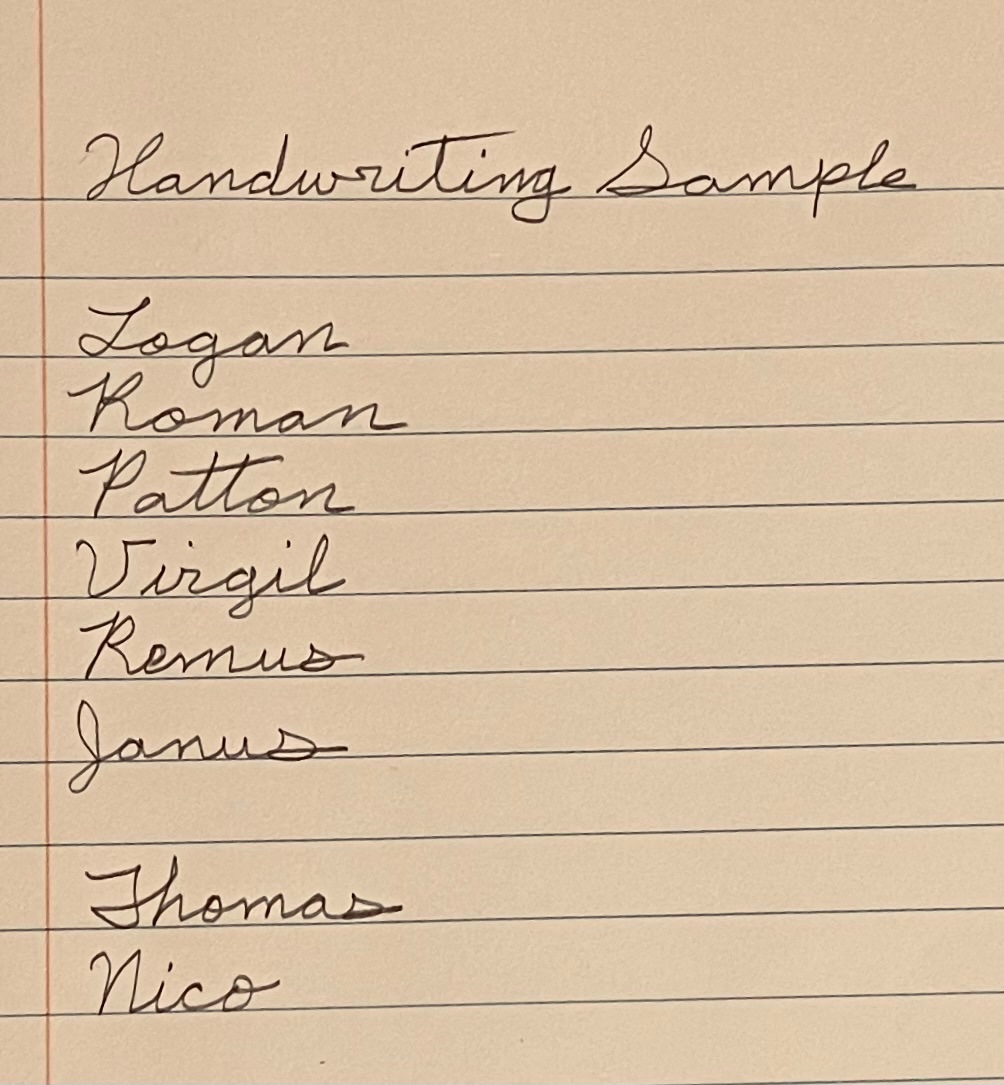 Handwriting Sample
Logan
Roman
Patton
Virgil
Remus
Janus
Thomas
Nico